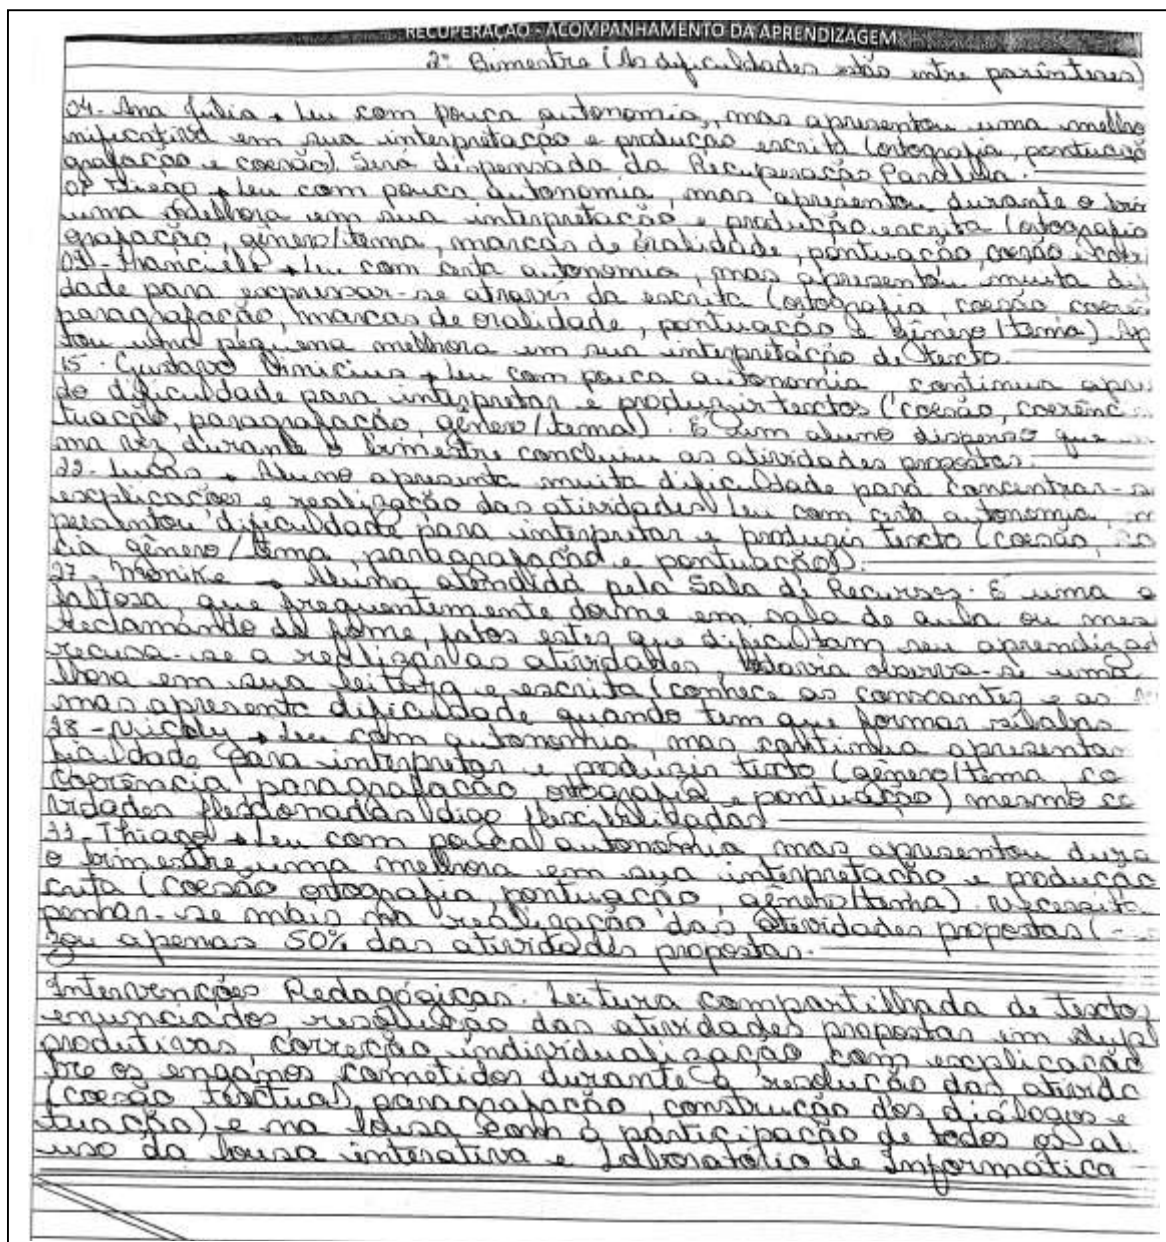 RECUPERAÇÃO - ACOMPANHAMENTO DA APRENDIZAGEM
2º Bimestre (As dificuldades estão entre parênteses)
04- Ana Júlia → Leu com pouca autonomia, mas apresentou uma melho
nificativa em sua interpretação e produção escrita (ortografia, pontuação
grafação e coesão). Será dispensada da Recuperação Paralela.
Diego → Leu com pouca autonomia, mas apresentou durante o bim
uma melhora em sua interpretação e produção escrita (ortografia
grafação, gênero/tema, marcas de oralidade, pontuação, coesão e coer
→ Leu com certa autonomia, mas apresentou muita difi
dade para expressar-se através da escrita (ortografia, coesão, coerên
paragrafação, marcas de oralidade, pontuação e gênero/tema). Ap
tou uma pequena melhora em sua interpretação de texto.
15- Gustavo Vinicius → Leu com pouca autonomia, continua apre
do dificuldade para interpretar e produzir textos (coesão, coerênc
tuação, paragrafação, gênero/tema). É um aluno disperso que
ma vez durante o bimestre concluiu as atividades propostas.
22- Lucas → Aluno apresenta muita dificuldade para concentrar-s
explicações e realização das atividades. Leu com certa autonomia, m
dificuldade para interpretar e produzir texto (coesão, co
cia, gênero/tema, paragrafação e pontuação).
27- Monike → Aluna atendida pela Sala de Recursos. É uma a
faltosa, que frequentemente dorme em sala de aula ou mes
reclamando de fome, fatos estes que dificultam seu aprendizad
recusa-se a realizar as atividades. Todavia observa-se uma
lhora em sua leitura e escrita (conhece as consoantes e as
mas apresenta dificuldade quando tem que formar sílabas
28- Nicoly → Leu com autonomia, mas continua apresentan
ficuldade para interpretar e produzir texto (gênero/tema, co
coerência, paragrafação, ortografia e pontuação) mesmo co
vidades flexionadas digo flexibilizadas
33- Thiago → Leu com pouca autonomia, mas apresentou dura
o bimestre uma melhora em sua interpretação e produção
crita (coesão, ortografia, pontuação, gênero/tema). Necessita
penhar-se mais na realização das atividades propostas (
zou apenas 50% das atividades propostas.
Intervenções Pedagógicas. Leitura compartilhada de textos
enunciados, resolução das atividades propostas em dupl
produtivas, correção individualização com explicação
bre os enganos cometidos durante a resolução das ativida
(coesão textual, paragrafação, construção dos diálogos e
tuação) e na lousa com a participação de todos os al.
uso da lousa interativa e Laboratório de Informática